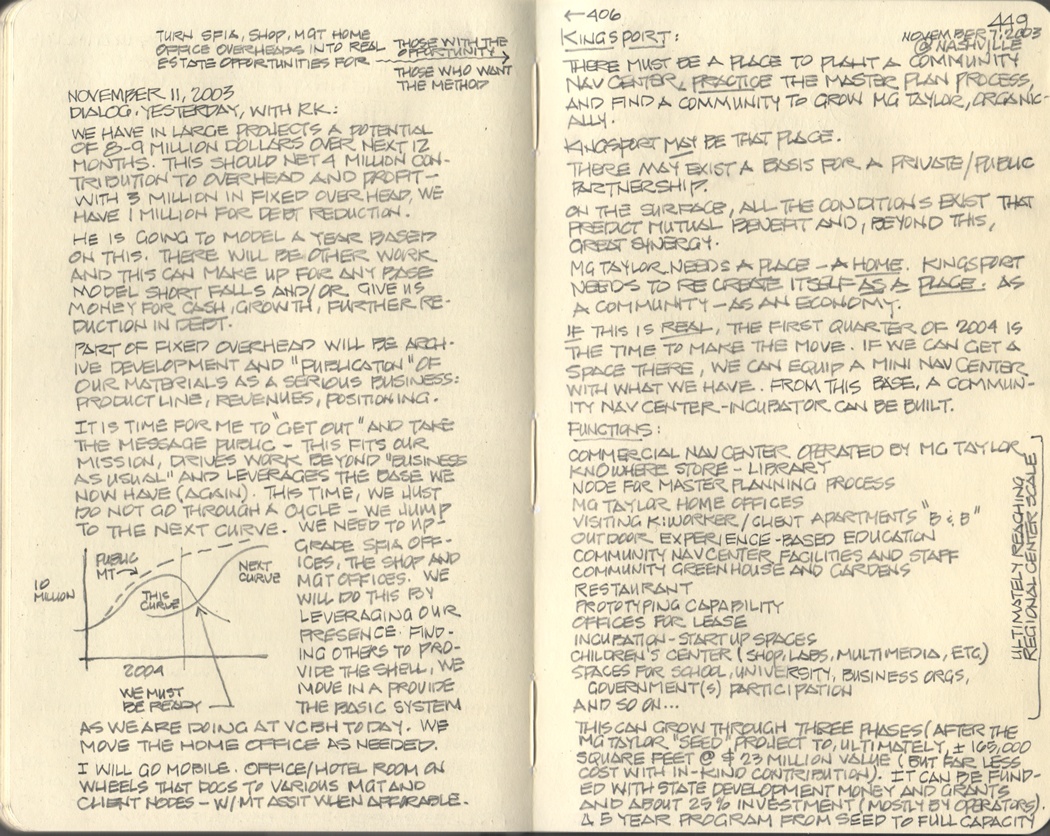 TURN SFIA, SHOP, MGT HOME
OFFICE OVERHEADS INTO REAL
ESTATE OPPORTUNITIES FOR
THOSE WITH THE
OPPORTUNITY
THOSE WHO WANT
THE METHOD
NOVEMBER 11, 2003
DIALOG, YESTERDAY, WITH R.K.:
WE HAVE IN LARGE PROJECTS A POTENTIAL
OF 8-9 MILLION DOLLARS OVER NEXT 12
MONTHS. THIS SHOULD NET 4 MILLION CON-
TRIBUTION TO OVERHEAD AND PROFIT -
WITH 3 MILLION IN FIXED OVERHEAD, WE
HAVE 1 MILLION FOR DEBT REDUCTION.
HE IS GOING TO MODEL A YEAR BASED
ON THIS. THERE WILL BE OTHER WORK
AND THIS CAN MAKE UP FOR ANY BASE
MODEL SHORT FALLS AND/OR GIVE US
MONEY FOR CASH, GROWTH, FURTHER RE-
DUCTION IN DEBT.
PART OF FIXED OVERHEAD WILL BE ARCH-
IVE DEVELOPMENT AND "PUBLICATION" OF
OUR MATERIALS AS A SERIOUS BUSINESS:
PRODUCT LINE, REVENUES, POSITIONING.
IT IS TIME FOR ME TO "GET OUT" AND TAKE
THE MESSAGE PUBLIC - THIS FITS OUR
MISSION, DRIVES WORK BEYOND "BUSINESS
AS USUAL" AND LEVERAGES THE BASE WE
NOW HAVE (AGAIN). THIS TIME, WE JUST
DO NOT GO THROUGH A CYCLE - WE JUMP
TO THE NEXT CURVE. WE NEED TO UP-
GRADE SFIA OFF-
ICES, THE SHOP AND
MGT OFFICES. WE
WILL DO THIS BY
LEVERAGING OUR
PRESENCE. FIND-
ING OTHERS TO PRO-
VIDE THE SHELL, WE
MOVE IN A PROVIDE
THE BASIC SYSTEM
PUBLIC
MT
NEXT
CURVE
10
MILLION
THIS
CURVE
2004
WE MUST
BE READY
AS WE ARE DOING AT VCBH TODAY. WE
MOVE THE HOME OFFICE AS NEEDED.
I WILL GO MOBILE. OFFICE/HOTEL ROOM ON
WHEELS THAT DOCS TO VARIOUS MGT AND
CLIENT NODES - W/MT ASSIT WHEN AFFORABLE.
←406
449
KINGSPORT:
NOVEMBER 7, 2003
@ NASHVILLE
THERE MUST BE A PLACE TO PLANT A COMMUNITY
NAV CENTER, PRACTICE THE MASTER PLAN PROCESS,
AND FIND A COMMUNITY TO GROW MG TAYLOR, ORGANIC-
ALLY.
KINGSPORT MAY BE THAT PLACE.
THERE MAY EXIST A BASIS FOR A PRIVATE/PUBLIC
PARTNERSHIP.
ON THE SURFACE, ALL THE CONDITIONS EXIST THAT
PREDICT MUTUAL BENEFIT AND, BEYOND THIS,
GREAT SYNERGY.
MG TAYLOR NEEDS A PLACE - A HOME. KINGSPORT
NEEDS TO RE CREATE ITSELF AS A PLACE. AS
A COMMUNITY - AS AN ECONOMY.
IF THIS IS REAL, THE FIRST QUARTER OF 2004 IS
THE TIME TO MAKE THE MOVE. IF WE CAN GET A
SPACE THERE, WE CAN EQUIP A MINI NAV CENTER
WITH WHAT WE HAVE. FROM THIS BASE, A COMMUN-
ITY NAV CENTER-INCUBATOR CAN BE BUILT.
FUNCTIONS:
COMMERCIAL NAV CENTER OPERATED BY MG TAYLOR
KNOWHERE STORE - LIBRARY
NODE FOR MASTER PLANNING PROCESS
MG TAYLOR HOME OFFICES
VISITING K.WORKER/CLIENT APARTMENTS "B & B"
OUTDOOR EXPERIENCE-BASED EDUCATION
COMMUNITY NAVCENTER FACILITIES AND STAFF
COMMUNITY GREENHOUSE AND GARDENS
RESTAURANT
PROTOTYPING CAPABILITY
OFFICES FOR LEASE
INCUBATION-START UP SPACES
CHILDREN'S CENTER (SHOP, LABS, MULTIMEDIA, ETC)
SPACES FOR SCHOOL, UNIVERSITY, BUSINESS ORGS,
GOVERNMENT(S) PARTICIPATION
AND SO ON...
ULTIMATELY REACHING
REGIONAL CENTER SCALE
THIS CAN GROW THROUGH THREE PHASES (AFTER THE
MG TAYLOR "SEED" PROJECT TO, ULTIMATELY, ± 165,000
SQUARE FEET @ $ 23 MILLION VALUE (BUT FAR LESS
COST WITH IN-KIND CONTRIBUTION). IT CAN BE FUND-
ED WITH STATE DEVELOPMENT MONEY AND GRANTS
AND ABOUT 25% INVESTMENT (MOSTLY BY OPERATORS).
A 5 YEAR PROGRAM FROM SEED TO FULL CAPACITY